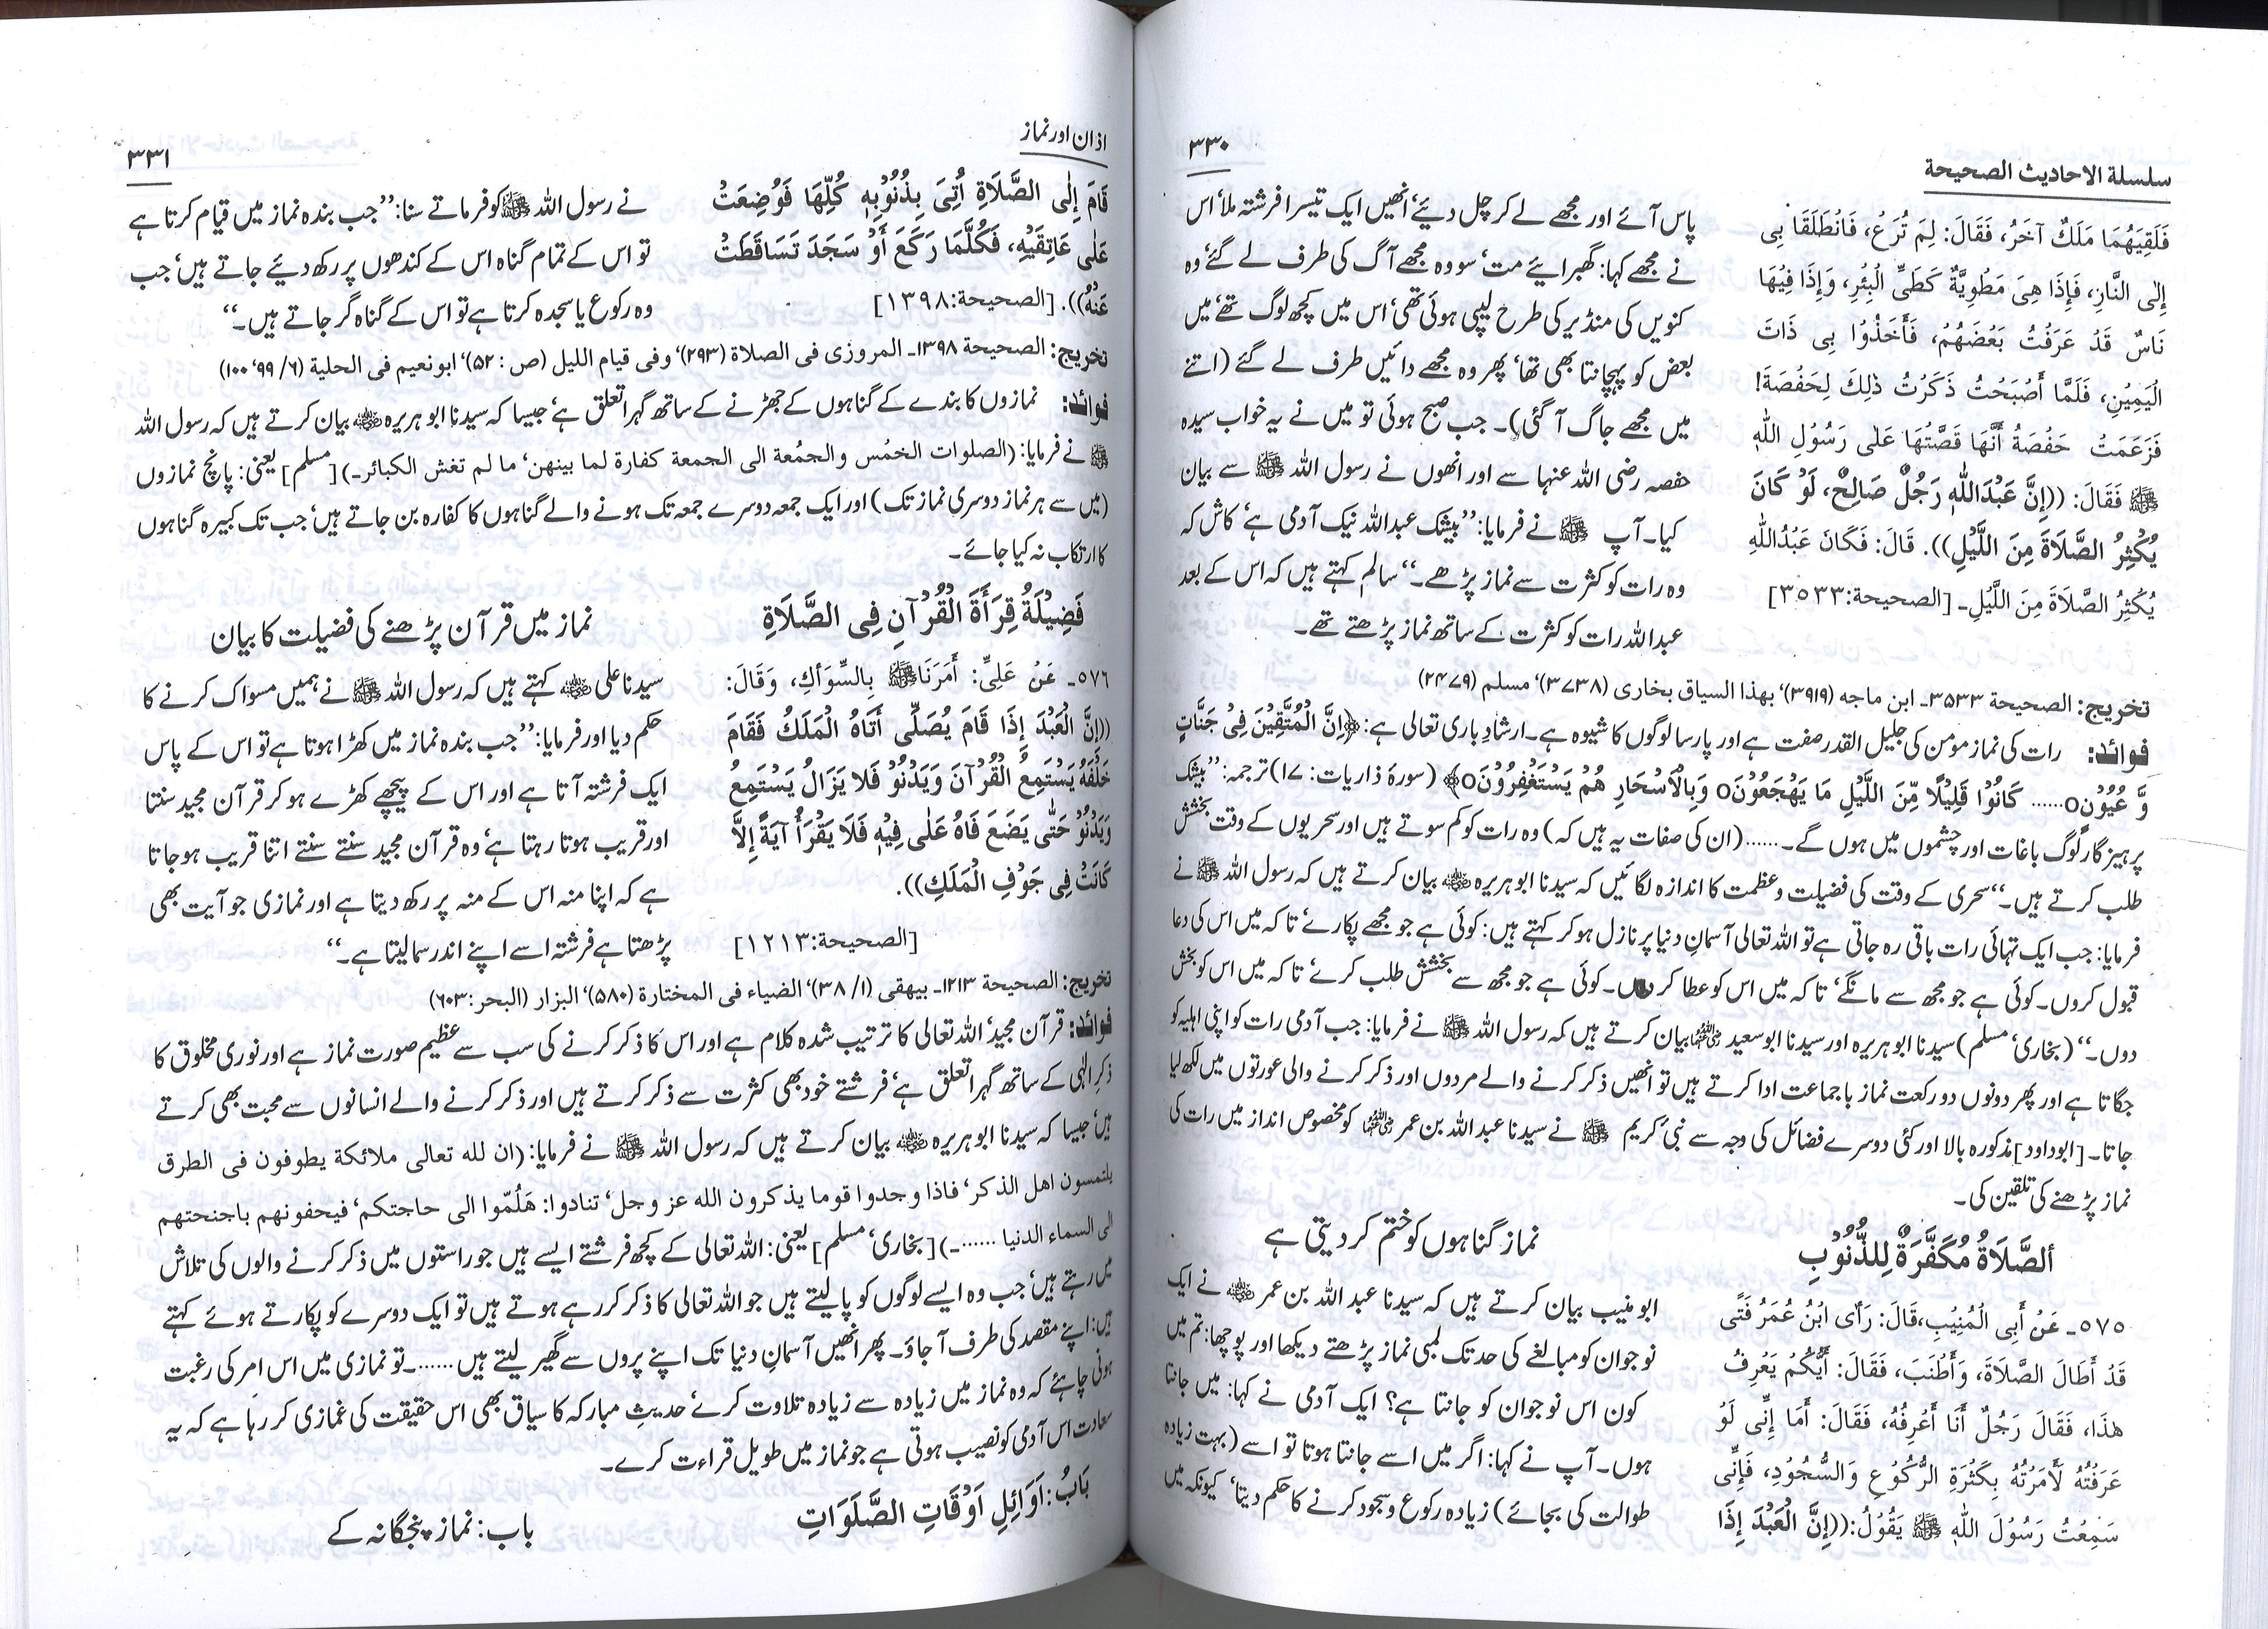 سلسلة الاحاديث الصحيحة
۳۳۰
فَلَقِيَهُمَا مَلَكٌ آخَرُ، فَقَالَ: لِمَ تُرَعُ، فَانْطَلَقَا بِي
إِلَى النَّارِ، فَإِذَا هِيَ مَطْوِيَّةٌ كَطَيِّ الْبِئْرِ، وَإِذَا فِيْهَا
نَاسٌ قَدْ عَرَفْتُ بَعْضَهُمْ، فَأَخَذُوْا بِي ذَاتَ
الْيَمِيْنِ، فَلَمَّا أَصْبَحْتُ ذَكَرْتُ ذٰلِكَ لِحَفْصَةَ!
فَزَعَمَتْ حَفْصَةُ أَنَّهَا قَصَّتْهَا عَلٰى رَسُوْلِ اللّٰهِ
ﷺ فَقَالَ: ((إِنَّ عَبْدَاللّٰهِ رَجُلٌ صَالِحٌ، لَوْ كَانَ
يُكْثِرُ الصَّلَاةَ مِنَ اللَّيْلِ)). قَالَ: فَكَانَ عَبْدُاللّٰهِ
يُكْثِرُ الصَّلَاةَ مِنَ اللَّيْلِ۔ [الصحيحة:٣٥٣٣]
پاس آئے اور مجھے لے کر چل دیئے، انھیں ایک تیسرا فرشتہ ملا، اس
نے مجھے کہا: گھبرایئے مت، سو وہ مجھے آگ کی طرف لے گئے، وہ
کنویں کی منڈیر کی طرح لپٹی ہوئی تھی، اس میں کچھ لوگ تھے، میں
بعض کو پہچانتا بھی تھا، پھر وہ مجھے دائیں طرف لے گئے (اتنے
میں مجھے جاگ آ گئی)۔ جب صبح ہوئی تو میں نے یہ خواب سیدہ
حفصہ رضی اللہ عنہا سے اور انھوں نے رسول اللہ ﷺ سے بیان
کیا۔ آپ ﷺ نے فرمایا: ”بیشک عبداللہ نیک آدمی ہے، کاش کہ
وہ رات کو کثرت سے نماز پڑھے۔“ سالم کہتے ہیں کہ اس کے بعد
عبداللہ رات کو کثرت کے ساتھ نماز پڑھتے تھے۔
تخریج: الصحيحة ۳۵۳۳۔ ابن ماجه (۳۹۱۹)، بهذا السياق بخاری (۳۷۳۸)، مسلم (۲۴۷۹)
فوائد: رات کی نماز مؤمن کی جلیل القدر صفت ہے اور پارسا لوگوں کا شیوہ ہے۔ ارشادِ باری تعالی ہے: ﴿إِنَّ الْمُتَّقِيْنَ فِيْ جَنَّاتٍ
وَّ عُيُوْنٍ٥...... كَانُوْا قَلِيْلًا مِّنَ اللَّيْلِ مَا يَهْجَعُوْنَ٥ وَبِالْاَسْحَارِ هُمْ يَسْتَغْفِرُوْنَ٥﴾ (سورۂ ذاریات: ۱۷) ترجمہ: ”بیشک
پرہیز گار لوگ باغات اور چشموں میں ہوں گے۔......(ان کی صفات یہ ہیں کہ) وہ رات کو کم سوتے ہیں اور سحریوں کے وقت بخشش
طلب کرتے ہیں۔“ سحری کے وقت کی فضیلت وعظمت کا اندازہ لگائیں کہ سیدنا ابو ہریرہ ؓ بیان کرتے ہیں کہ رسول اللہ ﷺ نے
فرمایا: جب ایک تہائی رات باقی رہ جاتی ہے تو اللہ تعالی آسمانِ دنیا پر نازل ہو کر کہتے ہیں: کوئی ہے جو مجھے پکارے، تاکہ میں اس کی دعا
قبول کروں۔ کوئی ہے جو مجھ سے مانگے، تاکہ میں اس کو عطا کروں۔ کوئی ہے جو مجھ سے بخشش طلب کرے، تاکہ میں اس کو بخش
دوں۔“ (بخاری، مسلم) سیدنا ابو ہریرہ اور سیدنا ابوسعید ؓ بیان کرتے ہیں کہ رسول اللہ ﷺ نے فرمایا: جب آدمی رات کو اپنی اہلیہ کو
جگاتا ہے اور پھر دونوں دو رکعت نماز با جماعت ادا کرتے ہیں تو انھیں ذکر کرنے والے مردوں اور ذکر کرنے والی عورتوں میں لکھ لیا
جاتا۔ [ابوداود] مذکورہ بالا اور کئی دوسرے فضائل کی وجہ سے نبیٔ کریم ﷺ نے سیدنا عبد اللہ بن عمر ؓ کو مخصوص انداز میں رات کی
نماز پڑھنے کی تلقین کی۔
ألصَّلَاةُ مُكَفَّرَةٌ لِلذُّنُوْبِ
نماز گناہوں کو ختم کر دیتی ہے
٥٧٥۔ عَنْ أَبِي الْمُنِيْبِ، قَالَ: رَأٰى ابْنُ عُمَرُ فَتًى
قَدْ أَطَالَ الصَّلَاةَ، وَأَطْنَبَ، فَقَالَ: أَيُّكُمْ يَعْرِفُ
هٰذَا، فَقَالَ رَجُلٌ أَنَا أَعْرِفُهُ، فَقَالَ: أَمَا إِنِّي لَوْ
عَرَفْتُهُ لَأَمَرْتُهُ بِكَثْرَةِ الرُّكُوْعِ وَالسُّجُوْدِ، فَإِنِّي
سَمِعْتُ رَسُوْلَ اللّٰهِ ﷺ يَقُوْلُ: ((إِنَّ الْعَبْدَ إِذَا
ابو منیب بیان کرتے ہیں کہ سیدنا عبد اللہ بن عمر ؓ نے ایک
نوجوان کو مبالغے کی حد تک لمبی نماز پڑھتے دیکھا اور پوچھا: تم میں
کون اس نوجوان کو جانتا ہے؟ ایک آدمی نے کہا: میں جانتا
ہوں۔ آپ نے کہا: اگر میں اسے جانتا ہوتا تو اسے (بہت زیادہ
طوالت کی بجائے) زیادہ رکوع و سجود کرنے کا حکم دیتا، کیونکہ میں
اذان اور نماز
۳۳۱
قَامَ إِلَى الصَّلَاةِ أُتِيَ بِذُنُوْبِهٖ كُلِّهَا فَوُضِعَتْ
عَلٰى عَاتِقَيْهِ، فَكُلَّمَا رَكَعَ أَوْ سَجَدَ تَسَاقَطَتْ
عَنْهُ)). [الصحيحة:١٣٩٨]
نے رسول اللہ ﷺ کو فرماتے سنا: ”جب بندہ نماز میں قیام کرتا ہے
تو اس کے تمام گناہ اس کے کندھوں پر رکھ دیئے جاتے ہیں، جب
وہ رکوع یا سجدہ کرتا ہے تو اس کے گناہ گر جاتے ہیں۔“
تخریج: الصحيحة ۱۳۹۸۔ المروزی فی الصلاة (۲۹۳)، وفی قیام اللیل (ص: ۵۲)، ابونعیم فی الحلیة (۶/ ۹۹، ۱۰۰)
فوائد: نمازوں کا بندے کے گناہوں کے جھڑنے کے ساتھ گہرا تعلق ہے، جیسا کہ سیدنا ابو ہریرہ ؓ بیان کرتے ہیں کہ رسول اللہ
ﷺ نے فرمایا: (الصلوات الخمُس والجمُعة الى الجمعة كفارة لما بينهن، ما لم تغش الكبائر۔) [مسلم] یعنی: پانچ نمازوں
(میں سے ہر نماز دوسری نماز تک) اور ایک جمعہ دوسرے جمعہ تک ہونے والے گناہوں کا کفارہ بن جاتے ہیں، جب تک کبیرہ گناہوں
کا ارتکاب نہ کیا جائے۔
فَضِيْلَةُ قِرَأَةَ الْقُرْآنِ فِي الصَّلَاةِ
نماز میں قرآن پڑھنے کی فضیلت کا بیان
٥٧٦۔ عَنْ عَلِيٍّ: أَمَرَنَا ﷺ بِالسِّوَاكِ، وَقَالَ:
((إِنَّ الْعَبْدَ إِذَا قَامَ يُصَلِّي أَتَاهُ الْمَلَكُ فَقَامَ
خَلْفَهُ يَسْتَمِعُ الْقُرْآنَ وَيَدْنُوْ فَلا يَزَالُ يَسْتَمِعُ
وَيَدْنُوْ حَتّٰى يَضَعَ فَاهُ عَلٰى فِيْهِ فَلَا يَقْرَأُ آيَةً إِلَّا
كَانَتْ فِي جَوْفِ الْمَلَكِ)).
[الصحيحة:١٢١٣]
سیدنا علی ؓ کہتے ہیں کہ رسول اللہ ﷺ نے ہمیں مسواک کرنے کا
حکم دیا اور فرمایا: ”جب بندہ نماز میں کھڑا ہوتا ہے تو اس کے پاس
ایک فرشتہ آتا ہے اور اس کے پیچھے کھڑے ہو کر قرآن مجید سنتا
اور قریب ہوتا رہتا ہے، وہ قرآن مجید سنتے سنتے اتنا قریب ہو جاتا
ہے کہ اپنا منہ اس کے منہ پر رکھ دیتا ہے اور نمازی جو آیت بھی
پڑھتا ہے فرشتہ اسے اپنے اندر سما لیتا ہے۔“
تخریج: الصحيحة ۱۲۱۳۔ بیهقی (۱/ ۳۸)، الضیاء فی المختارة (۵۸۰)، البزار (البحر: ۶۰۳)
فوائد: قرآن مجید، اللہ تعالی کا ترتیب شدہ کلام ہے اور اس کا ذکر کرنے کی سب سے عظیم صورت نماز ہے اور نوری مخلوق کا
ذکرِ الٰہی کے ساتھ گہرا تعلق ہے، فرشتے خود بھی کثرت سے ذکر کرتے ہیں اور ذکر کرنے والے انسانوں سے محبت بھی کرتے
ہیں، جیسا کہ سیدنا ابو ہریرہ ؓ بیان کرتے ہیں کہ رسول اللہ ﷺ نے فرمایا: (ان لله تعالى ملائكة يطوفون فى الطرق
يلتمسون اهل الذكر، فاذا وجدوا قوما يذكرون الله عز وجل، تنادوا: هَلُمّوا الى حاجتكم، فيحفونهم باجنحتهم
الى السماء الدنيا ......۔) [بخاری، مسلم] یعنی: اللہ تعالی کے کچھ فرشتے ایسے ہیں جو راستوں میں ذکر کرنے والوں کی تلاش
میں رہتے ہیں، جب وہ ایسے لوگوں کو پا لیتے ہیں جو اللہ تعالی کا ذکر کر رہے ہوتے ہیں تو ایک دوسرے کو پکارتے ہوئے کہتے
ہیں: اپنے مقصد کی طرف آ جاؤ۔ پھر انھیں آسمانِ دنیا تک اپنے پروں سے گھیر لیتے ہیں......۔ تو نمازی میں اس امر کی رغبت
ہونی چاہئے کہ وہ نماز میں زیادہ سے زیادہ تلاوت کرے، حدیثِ مبارکہ کا سیاق بھی اس حقیقت کی غمازی کر رہا ہے کہ یہ
سعادت اس آدمی کو نصیب ہوتی ہے جو نماز میں طویل قراءت کرے۔
بَابُ: اَوَائِلِ اَوْقَاتِ الصَّلَوَاتِ
باب: نماز پنجگانہ کے